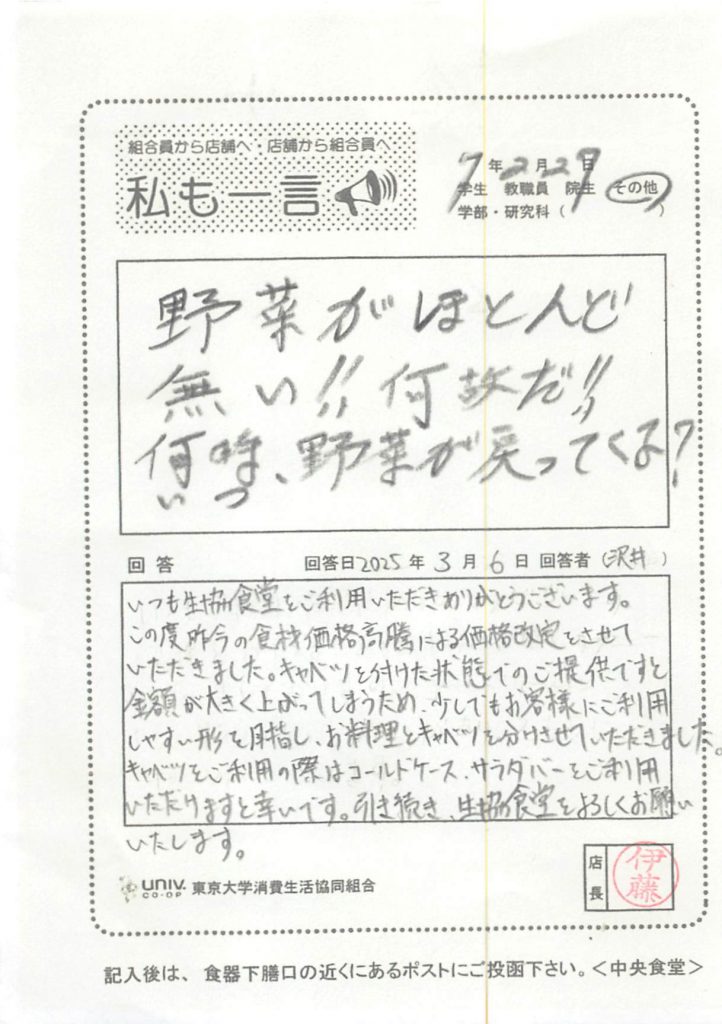 組合員から店舗へ・店舗から組合員へ
私も一言
7年2月27日
学生 教職員 院生 その他
学部・研究科( )
野菜がほとんど
無い!!何故だ!!
何時、野菜が戻ってくる?
いつ
回答 回答日2025年3月6日 回答者(沢井)
いつも生協食堂をご利用いただきありがとうございます。
この度昨今の食材価格高騰による価格改定をさせて
いただきました。キャベツを付けた状態でのご提供ですと
金額が大きく上がってしまうため、少しでもお客様にご利用
しやすい形を目指し、お料理とキャベツを分けさせていただきました。
キャベツをご利用の際はコールドケース、サラダバーをご利用
いただけますと幸いです。引き続き、生協食堂をよろしくお願い
いたします。
UNIV. CO-OP 東京大学消費生活協同組合
店長 伊藤
記入後は、食器下膳口の近くにあるポストにご投函下さい。<中央食堂>